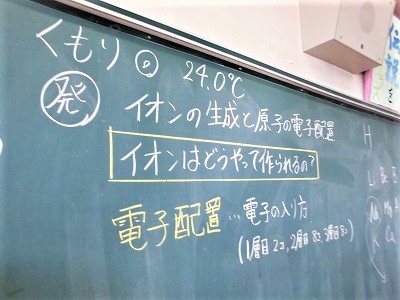 くもり ◎ 24.0℃
発 イオンの生成と原子の電子配置
イオンはどうやって作られるの?
電子配置…電子の入り方
(1層目2コ,2層目8コ,3層目8コ)
H
Li Be B
Na Mg A
Ca